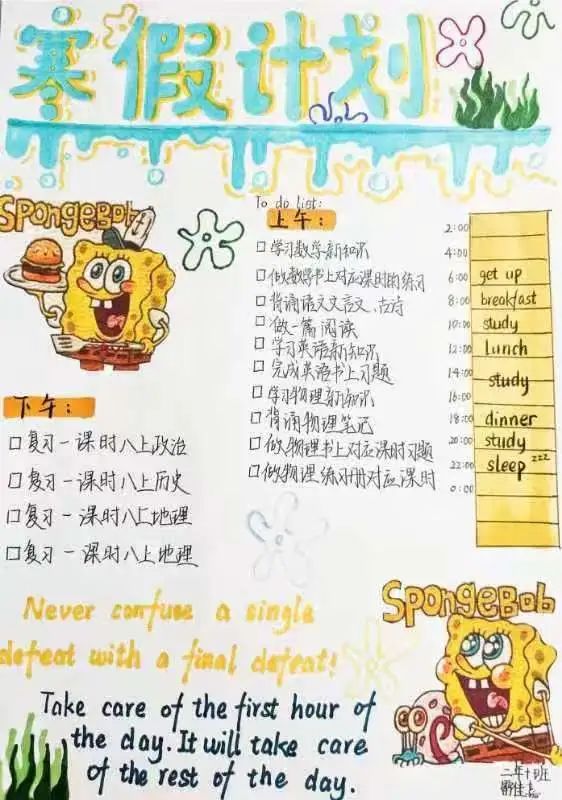 寒假计划
SPONGEBOB
To do list:
上午：
□学习数学新知识
□做数学书上对应课时的练习
□背诵语文文言文、古诗
□做一篇阅读
□学习英语新知识
□完成英语书上习题
□学习物理新知识
□背诵物理笔记
□做物理书上对应课时习题
□做物理练习册对应课时
2:00
4:00
6:00 get up
8:00 breakfast
10:00 study
12:00 Lunch
14:00
study
16:00
18:00 dinner
20:00 study
22:00 sleep zzz
0:00
下午：
□复习一课时八上政治
□复习一课时八上历史
□复习一课时八上地理
□复习一课时八上地理
Never confuse a single
defeat with a final defeat!
Take care of the first hour of
the day. It will take care
of the rest of the day.
SPONGEBOB
二年十班